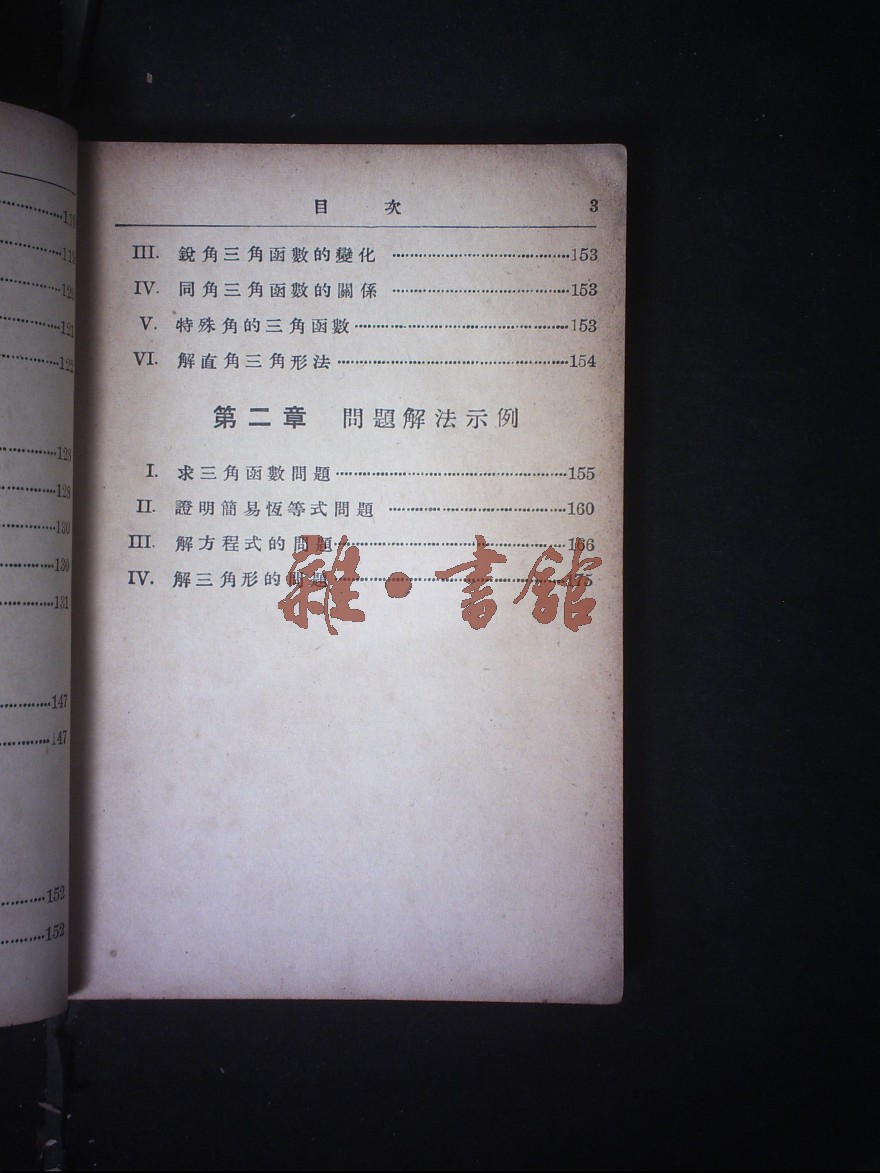 119
119
120
121
122
128
128
130
130
131
147
147
152
152
目 次 3
III. 銳角三角函數的變化 ……………153
IV. 同角三角函數的關係 ……………153
V. 特殊角的三角函數 ……………153
VI. 解直角三角形法 ……………154
第二章 問題解法示例
I. 求三角函數問題 ……………155
II. 證明簡易恆等式問題 ……………160
III. 解方程式的問題 ……………166
IV. 解三角形的問題 ……………175
雜·書館